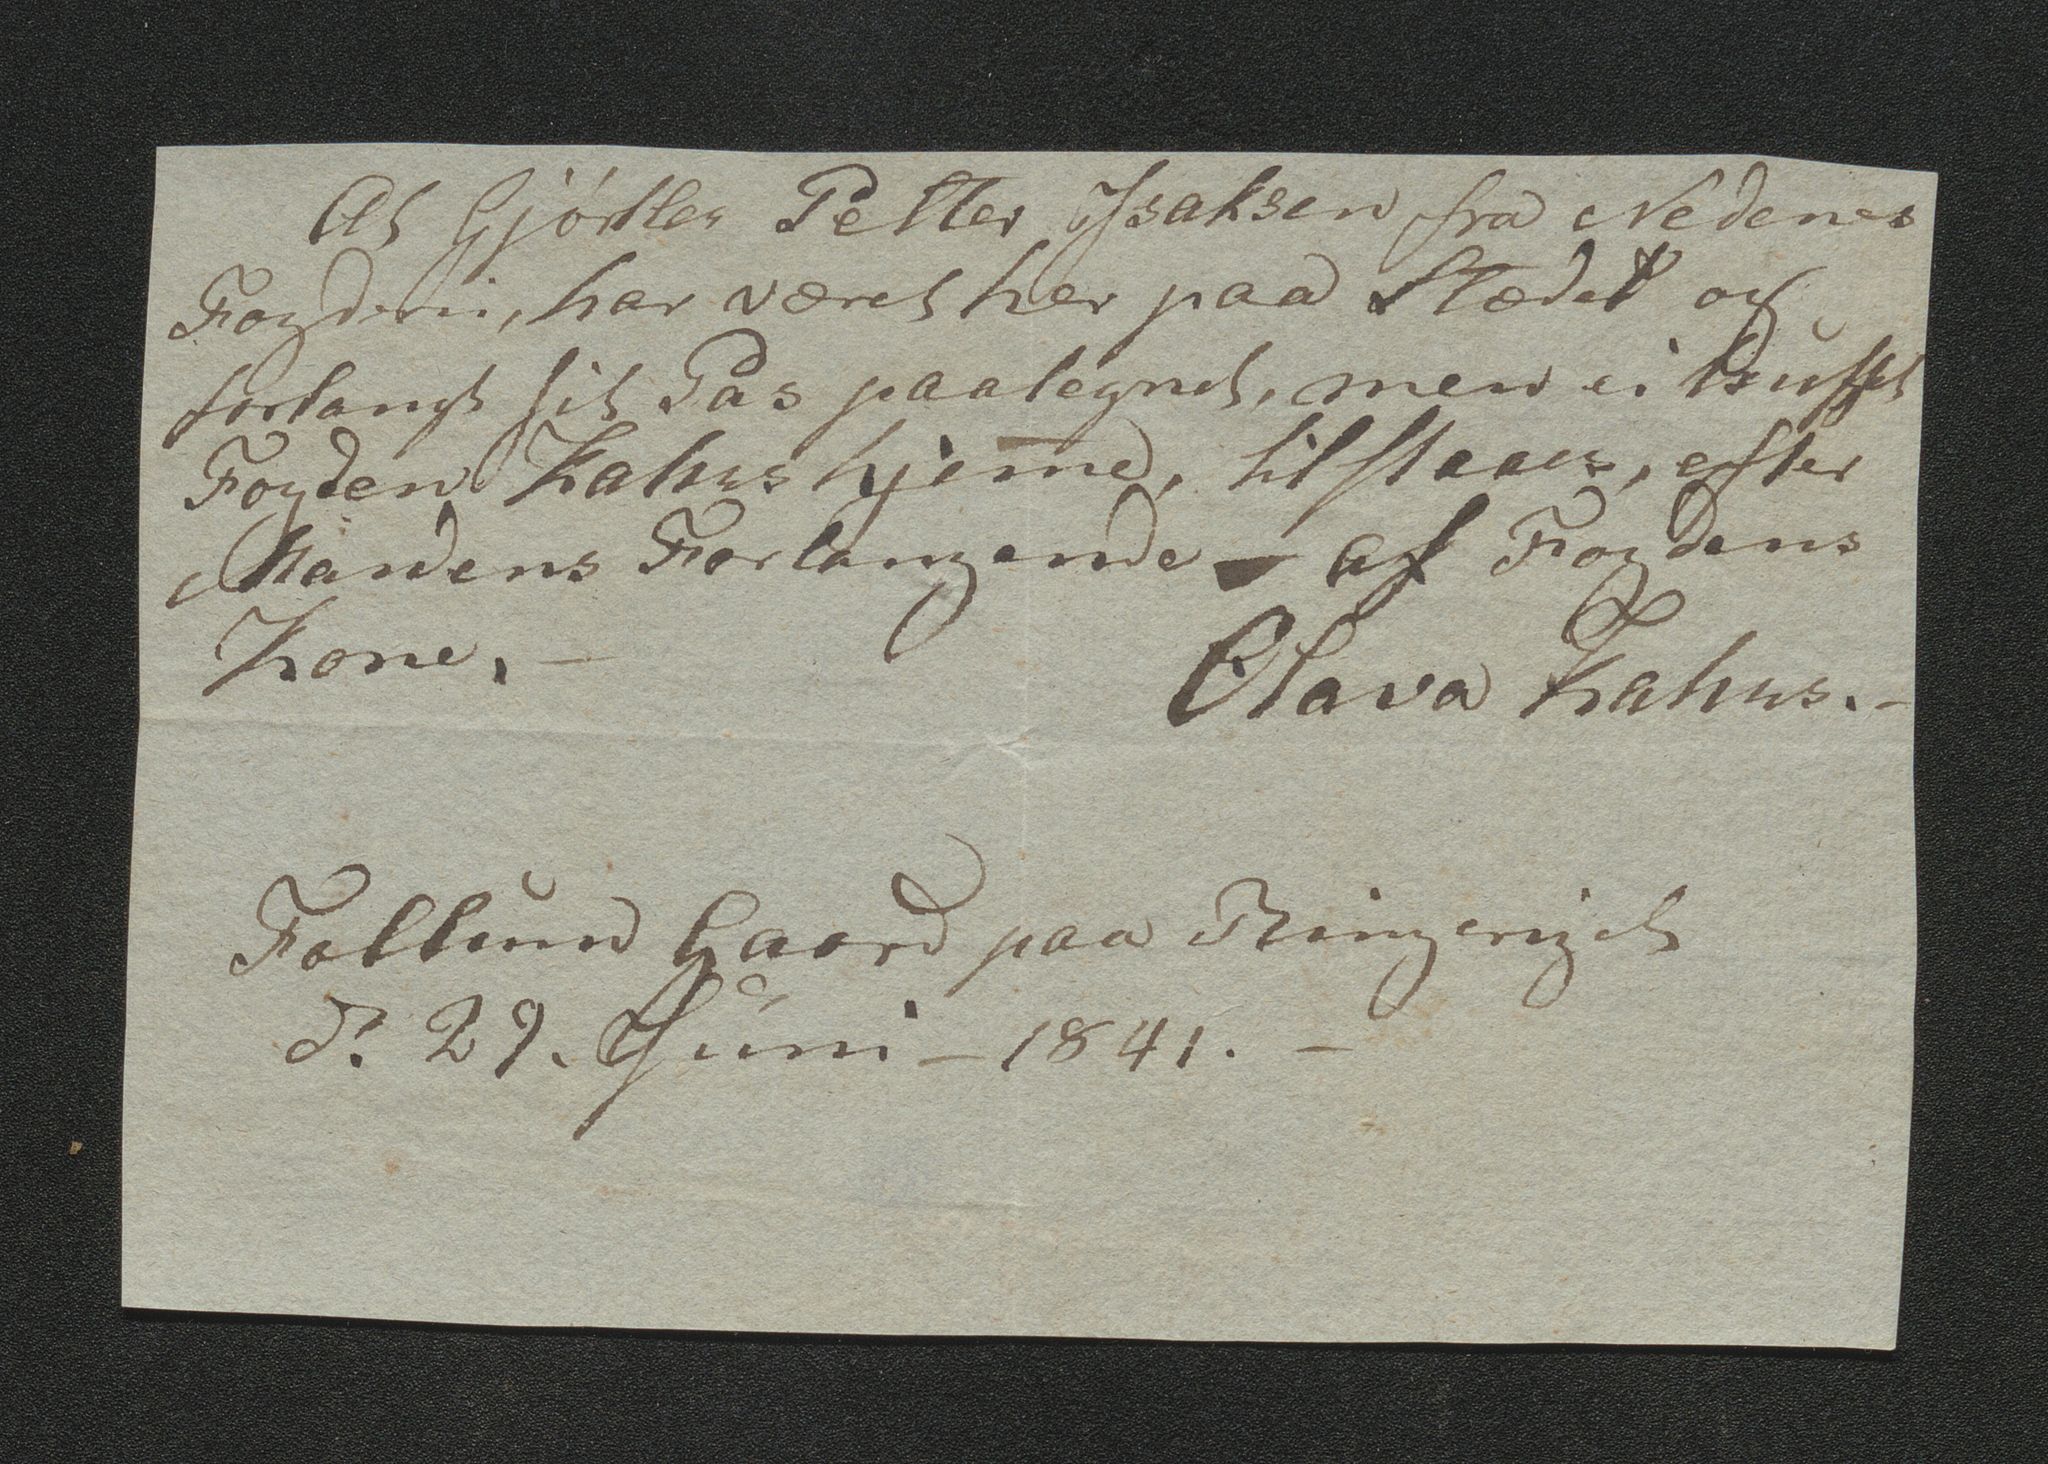 At Gjørtler Petter Isaksen fra Nedenes
Fogderie, har været her paa Stædet og
forlangt sit Pas paategnet, men ei truffet
Fogden Kahrs hjeme, tilstaaes, efter
Mandens Forlangende - af Fogdens
Kone. -
Olava Kahrs. -
Follum Gaard paa Ringeriget
d. 29. Juni - 1841. -